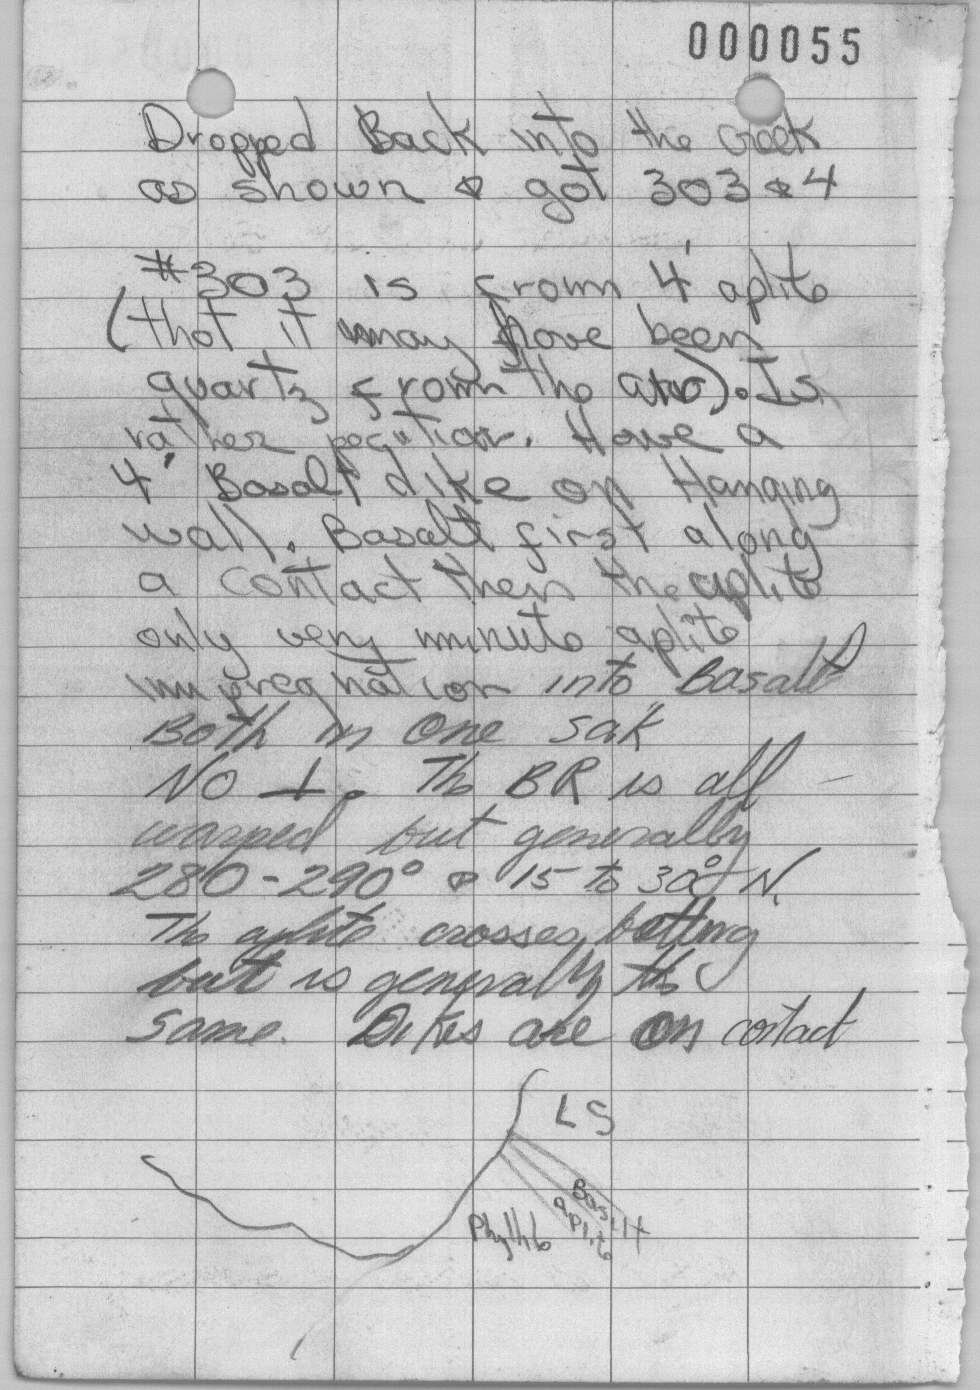 000055
Dropped Back into the creek
as shown & got 303 & 4
#303 is from 4' aplite
(that it may have been
quartz from the air). Is
rather peculiar. Have a
4' Basalt dike on Hanging
wall. Basalt first along
a contact then the aplite
only very minute aplite
impregnation into Basalt
Both in one sak
No ⊥. The BR is all
warped but generally
280-290° & 15 to 30° N.
The aplite crosses betting
but is generally the
same. Dikes are on contact
LS
Basalt
aplite
Phyllite